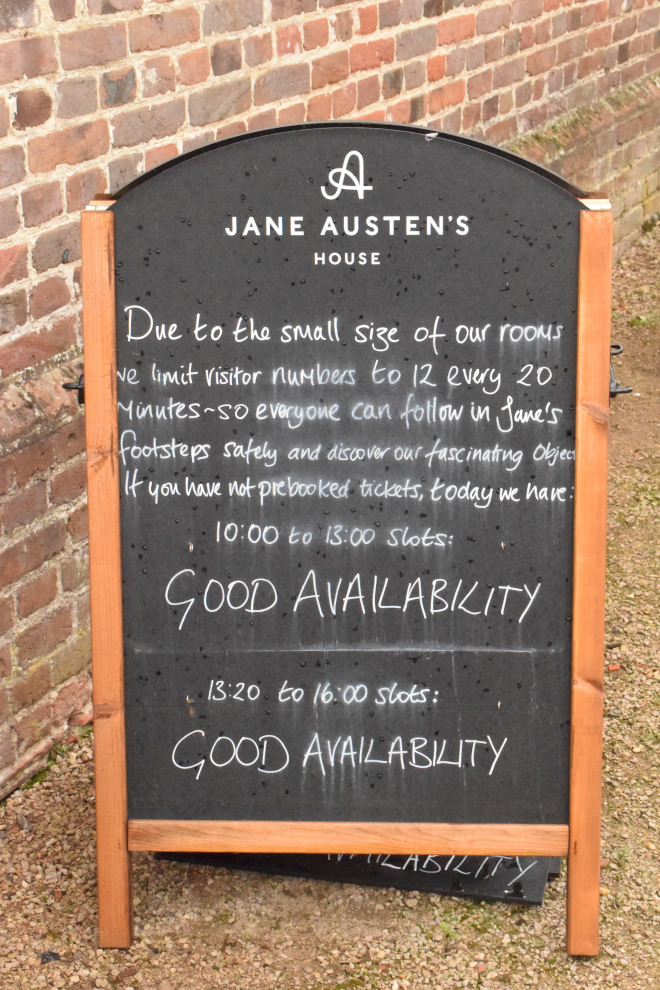 A
JANE AUSTEN'S
HOUSE
Due to the small size of our rooms
we limit visitor numbers to 12 every 20
Minutes~so everyone can follow in Jane's
footsteps safely and discover our fascinating Object
If you have not prebooked tickets, today we have:
10:00 to 13:00 slots:
GOOD AVAILABILITY
13:20 to 16:00 slots:
GOOD AVAILABILITY
AVAILABILITY